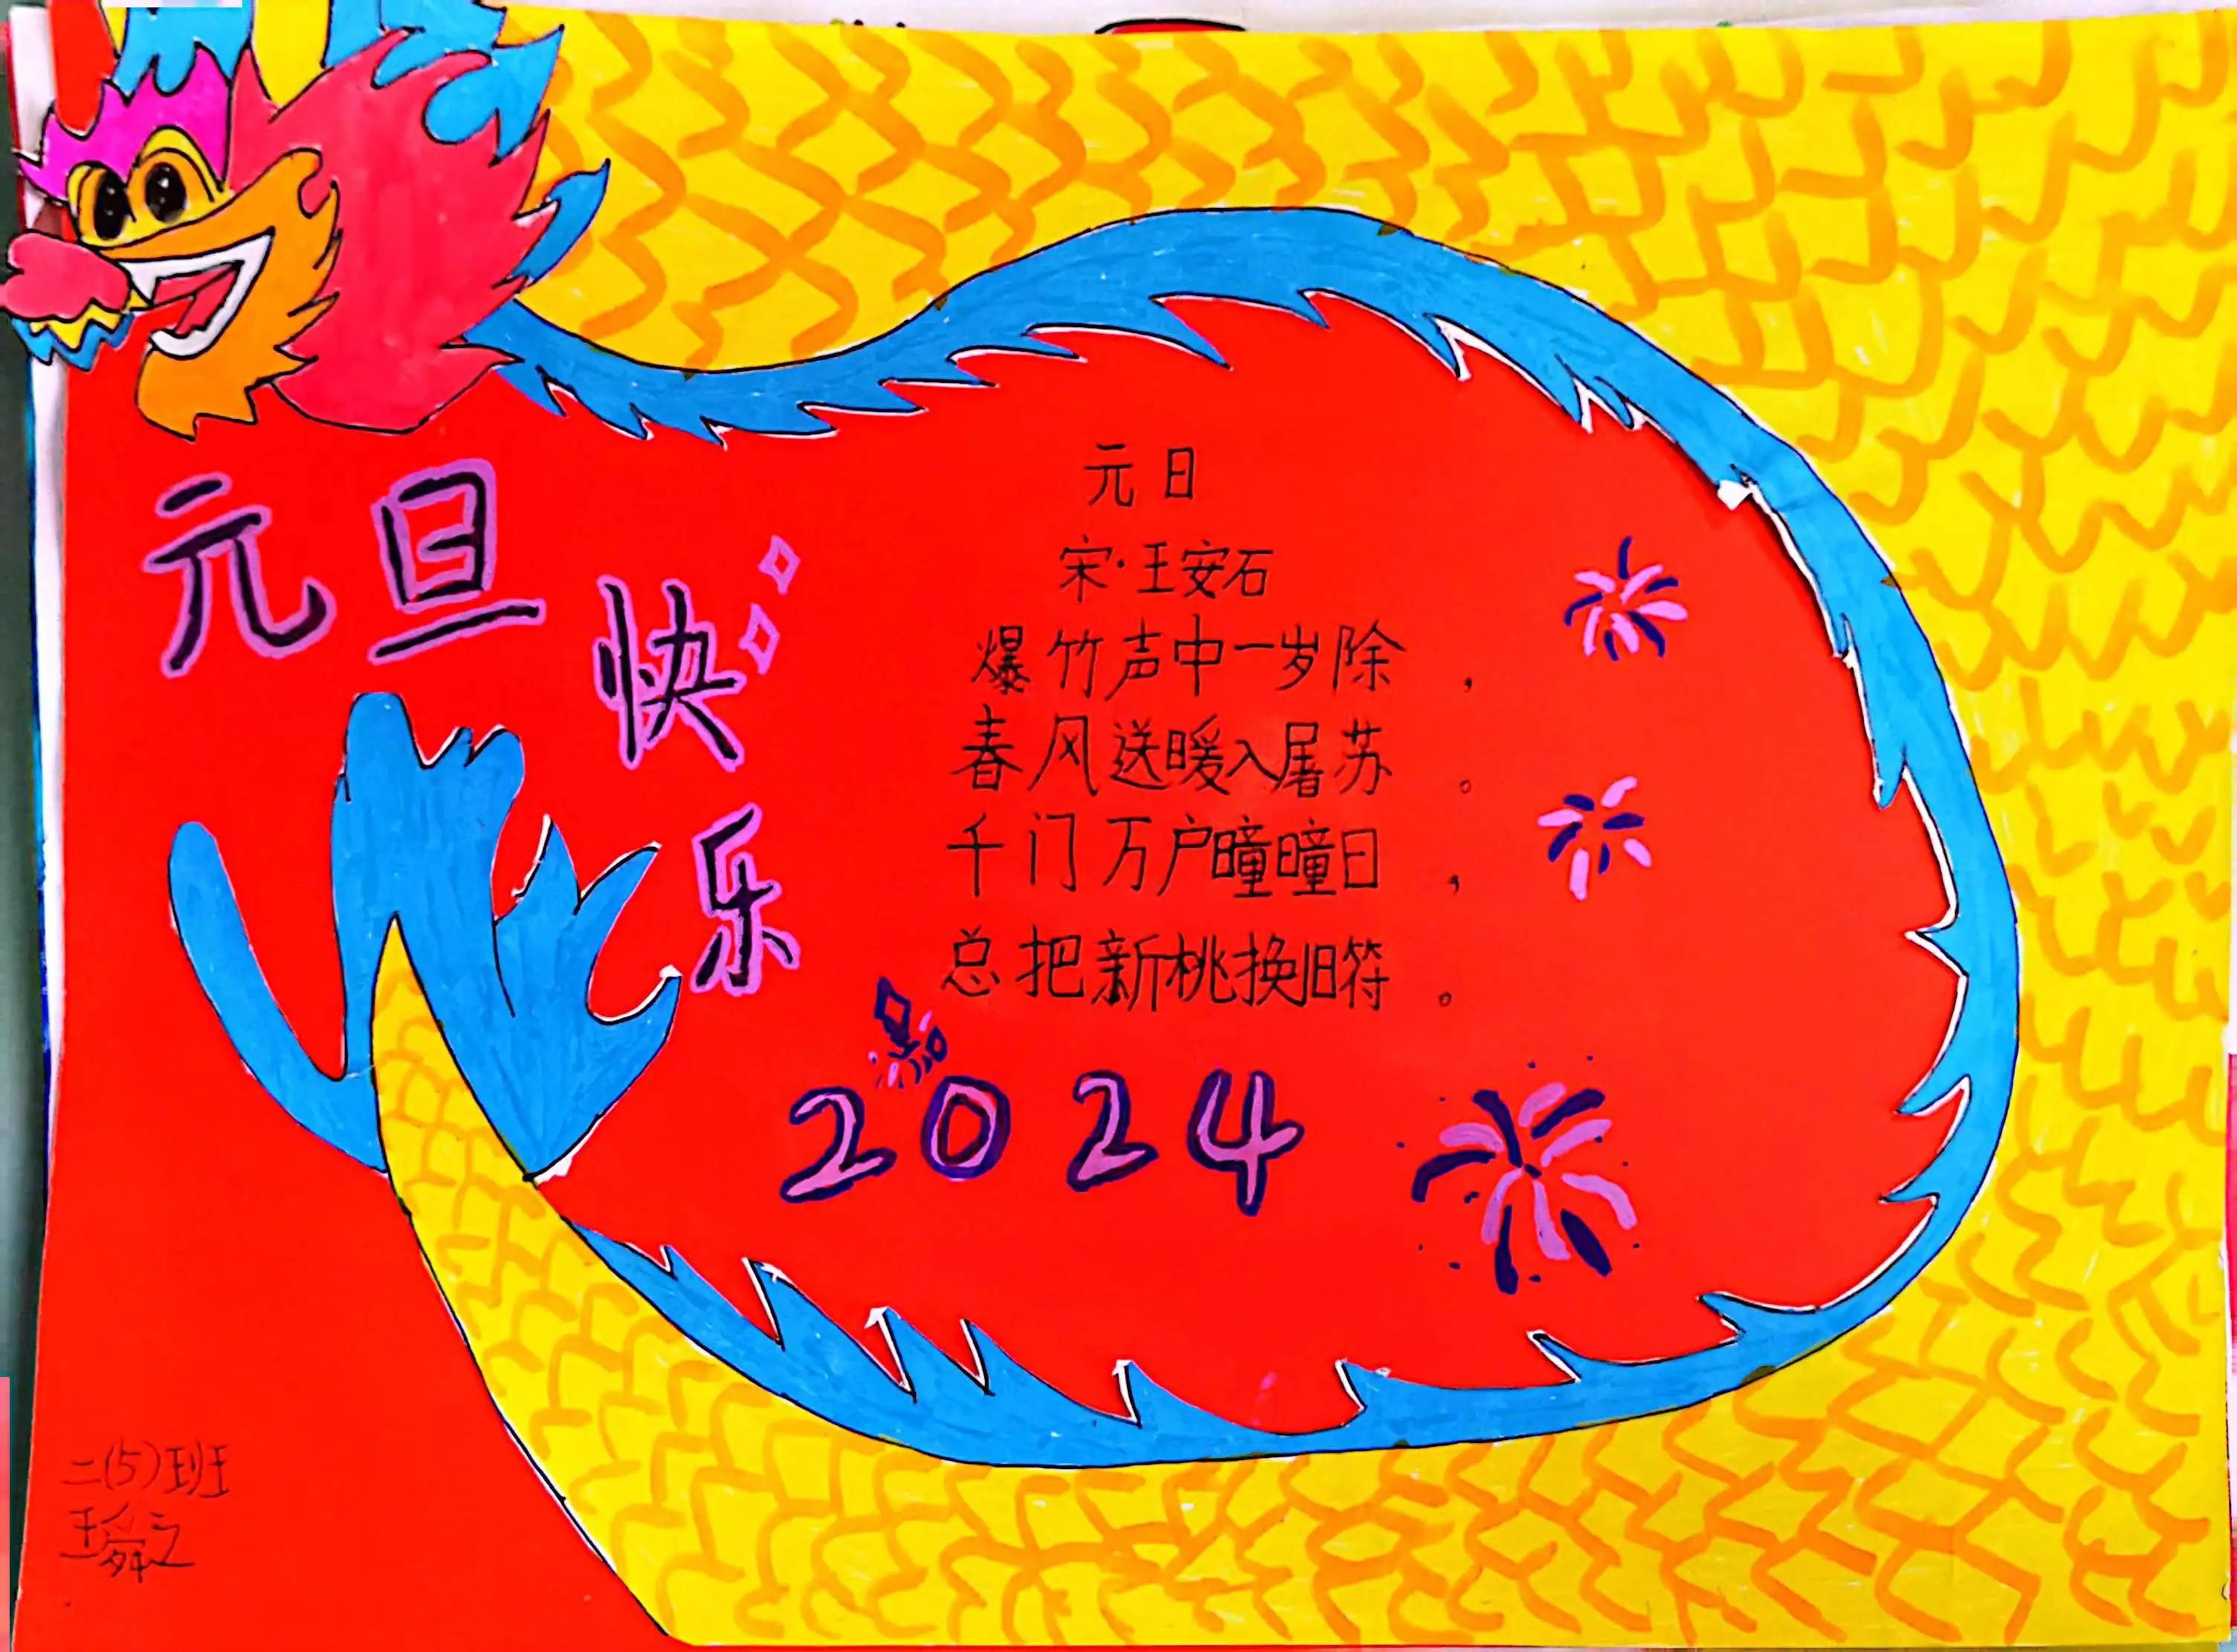 元旦快乐
元日
宋·王安石
爆竹声中一岁除，
春风送暖入屠苏。
千门万户曈曈日，
总把新桃换旧符。
2024
二(5)班
王舜之